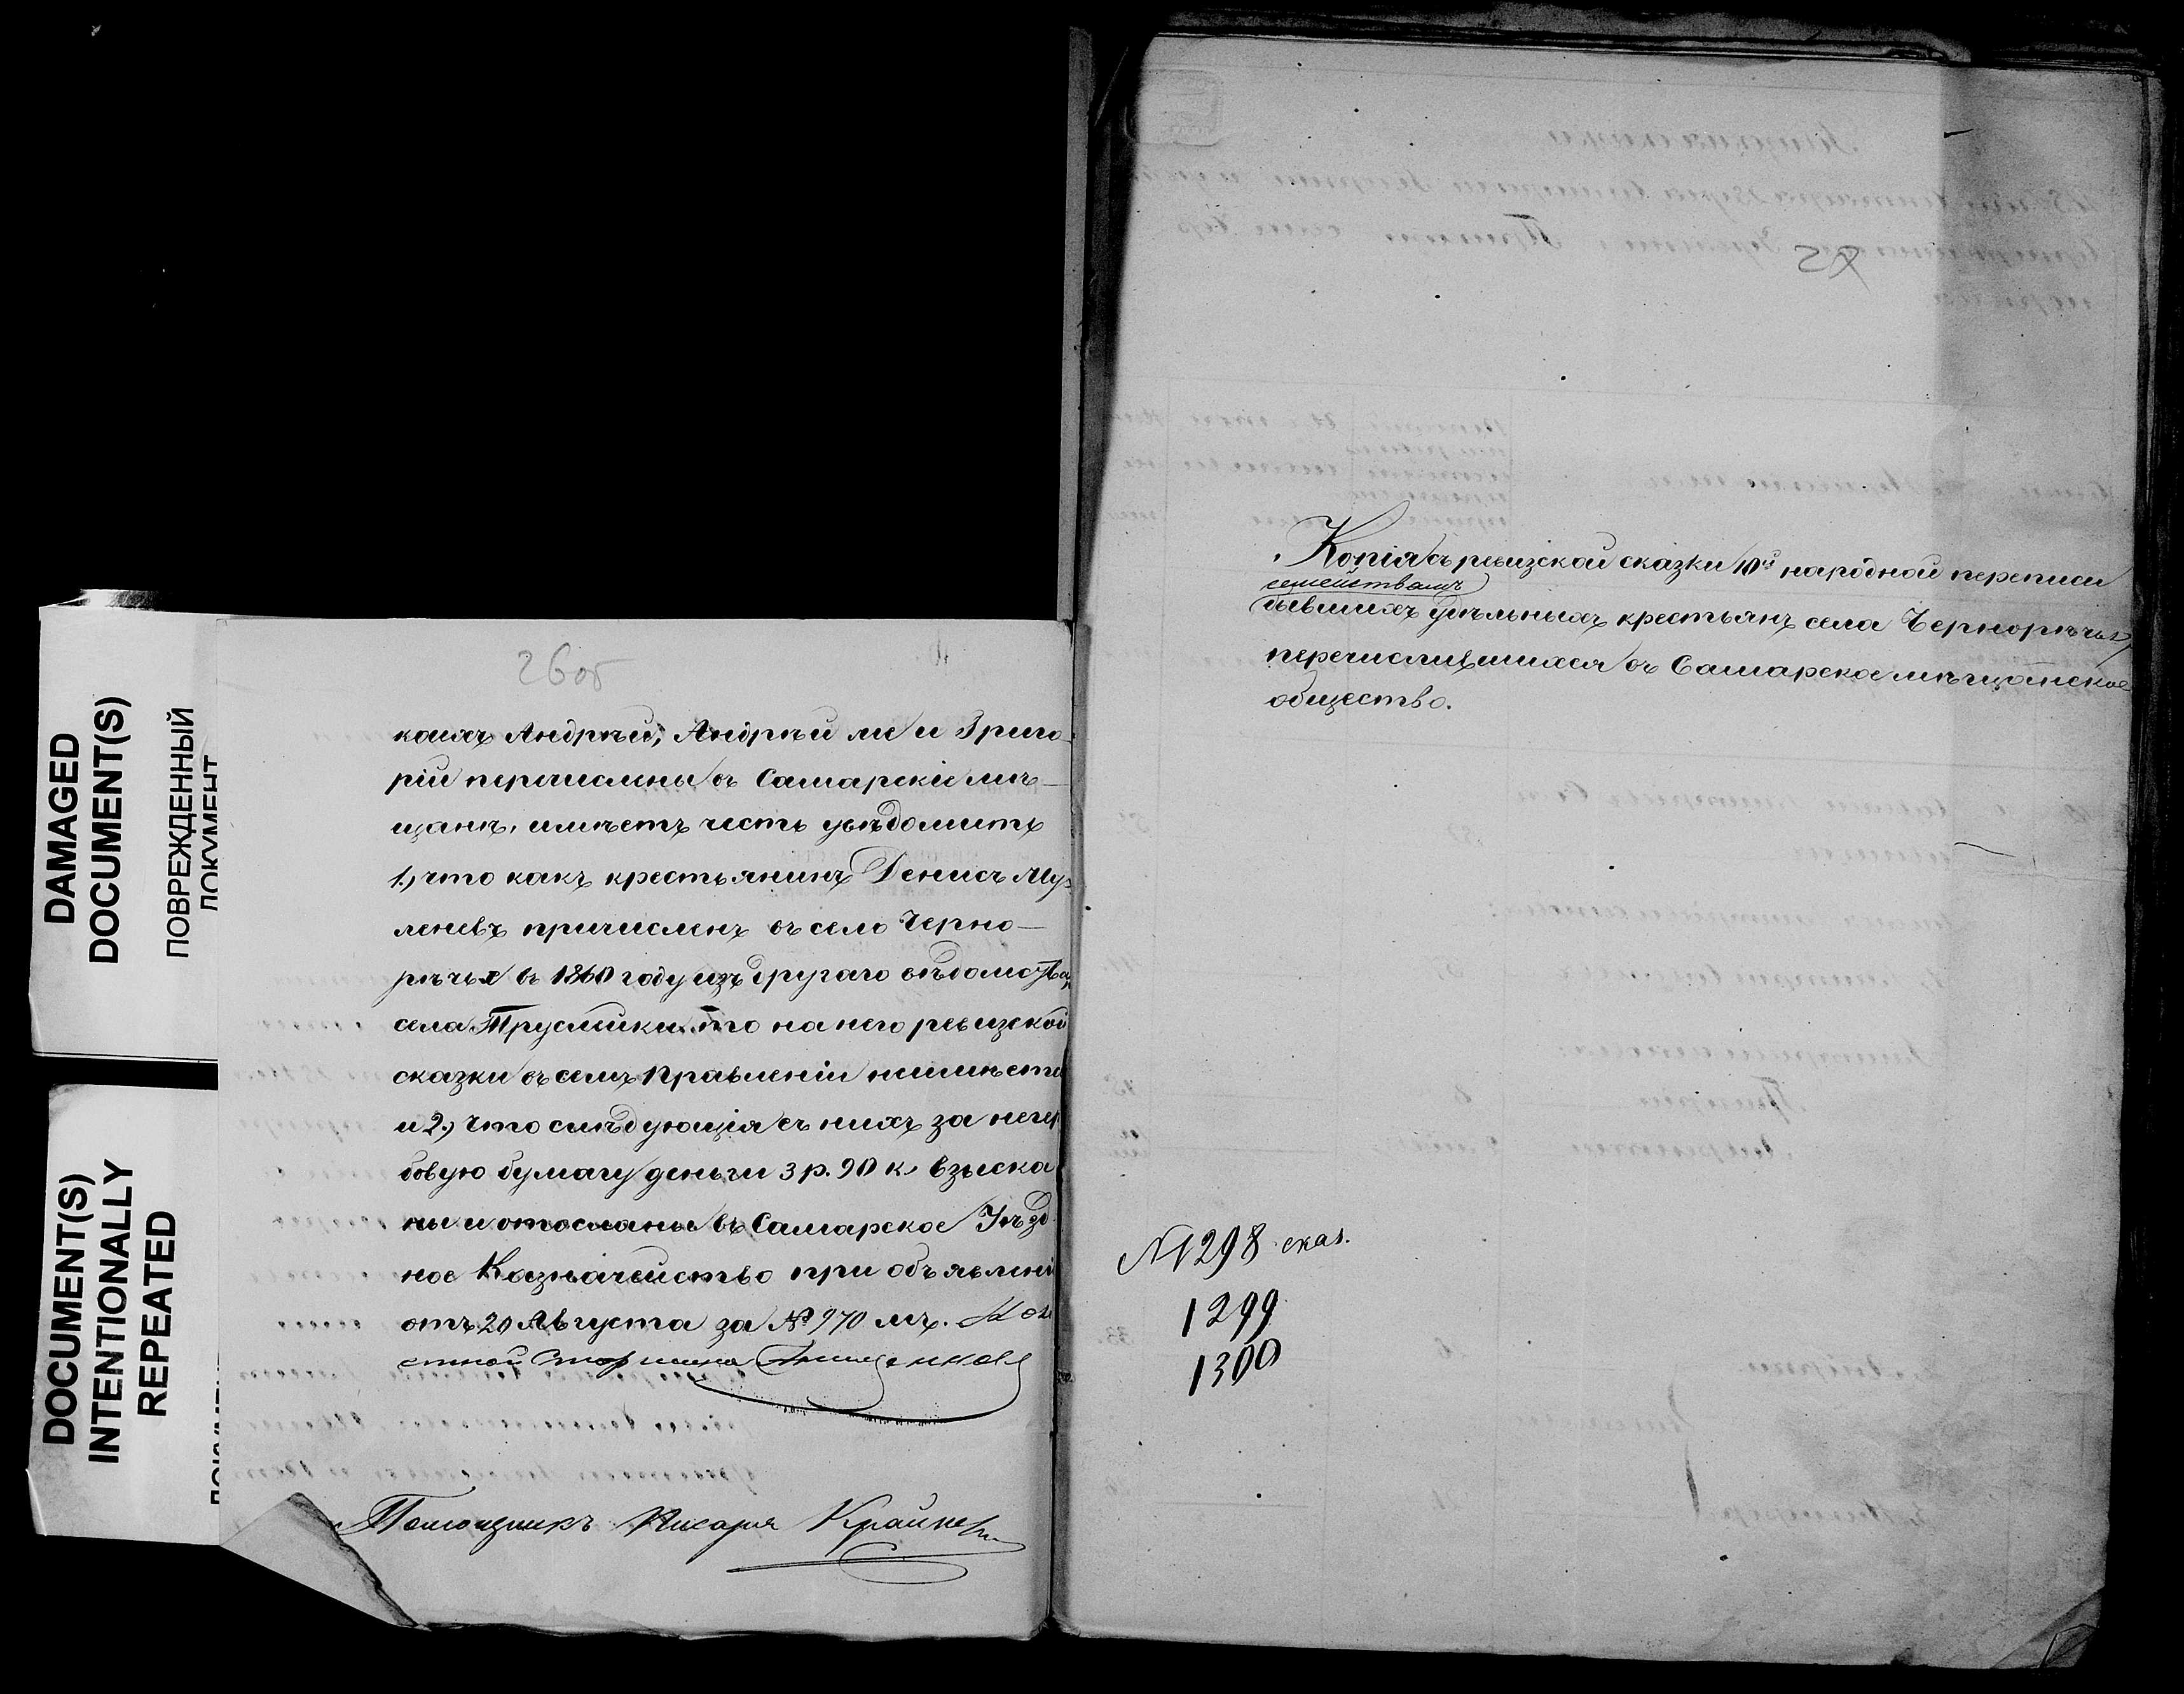 DAMAGED
DOCUMENT(S)
ПОВРЕЖДЕННЫЙ
ДОКУМЕНТ
DOCUMENT(S)
INTENTIONALLY
REPEATED
26об
кахъ Андрѣй, Андрѣй ли и Григо-
рій перечислены въ Самарскіе мѣ-
щане, имѣетъ честь увѣдомить
1.) что какъ крестьянинъ Денисъ Му-
леневъ причисленъ въ село Черно-
рѣчье въ 1860 году изъ другаго вѣдомства,
села то на него ревизской
сказки въ семъ Правленіи неимѣетъ
и 2.) что слѣдующія съ нихъ за негер
бовую бумагу деньги 3 р. 90 к. взыска
ны и отосланы въ Самарское Уѣзд
ное Казначейство при объявленіи
отъ 20 Августа за № 970 мъ.
стной Старшина
Помощникъ Писаря Крайневъ
Копія съ ревизской сказки 10й народной переписи
семействамъ
бывшихъ удѣльныхъ крестьянъ села Чернорѣчья,
перечислившихся въ Самарское мѣщанское
общество.
№ 1298 сказ.
1299
1300